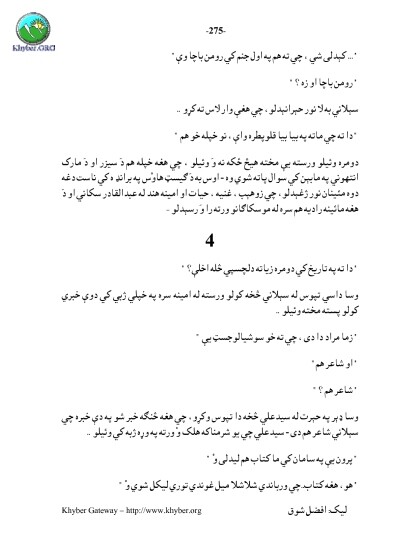 -275-
Khyber.ORG
"... کېدلی شي ، چي ته هم په اول جنم کي رومن باچا وې "
" رومن باچا او زه ؟ "
سېلاني به لا نور حېرانېدلو ، چي هغې وار لاس ته کړو ..
" دا ته چي ماته په بيا بيا قلوپطره وايې ، نو خپله خو هم "
دومره وئيلو ورسته يې مخته هيڅ څکه نه وَ وئيلو ، چي هغه خپله هم دَ سيزر او دَ مارک
انتهوني په مابېن کي سوال پاته شوې وه - اوس به دَ ګيسټ هاوُس په برانډه کي ناست دغه
دوه مئينان نور ژغېدلو ، چي زوهېب ، غنيه ، حيات او امينه هند له عبدالقادر سکاني او دَ
هغه مائينه راديه هم سره له موسکاګانو ورته را وَ رسېدلو ..
4
" دا ته په تاريخ کي دومره زياته دلچسپي څله اخلې؟ "
وسا داسي تپوس له سېلاني څخه کولو ورسته له امينه سره په خپلي ژبي کي دوې خبري
کولو پسته مخته وئيلو ..
" زما مراد دا دی ، چي ته خو سوشيالوجسټ يې "
" او شاعر هم "
" شاعر هم ؟ "
وسا ډېر په حېرت له سيدعلي څخه دا تپوس وکړو ، چي هغه څنګه خبر شو په دې خبره چي
سېلاني شاعر هم دی - سيدعلي چي يو شرمناکه هلک وُ ورته په وړه ژبه کي وئيلو ..
" پرون يې په سامان کي ما کتاب هم ليدلی وُ "
" هو ، هغه کتاب، چي ورباندي شلا شلا ميل غوندي توري ليکل شوي وُ "
Khyber Gateway – http://www.khyber.org
ليک: افضل شوق